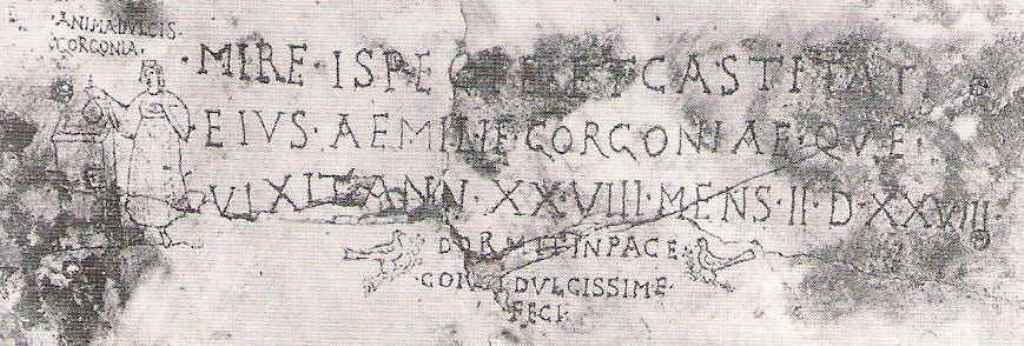 ·ANIMA DVLCIS·
GORGONIA·
·MIRE·ISPECIEI ET CASTITATI
EIVS·AEMILIE·GORGONIAE·QVE·
VIXIT ANN·XXVIII·MENS·II·D·XXVIII
DORMIT IN PACE
COIVGI DVLCISSIME
FECI